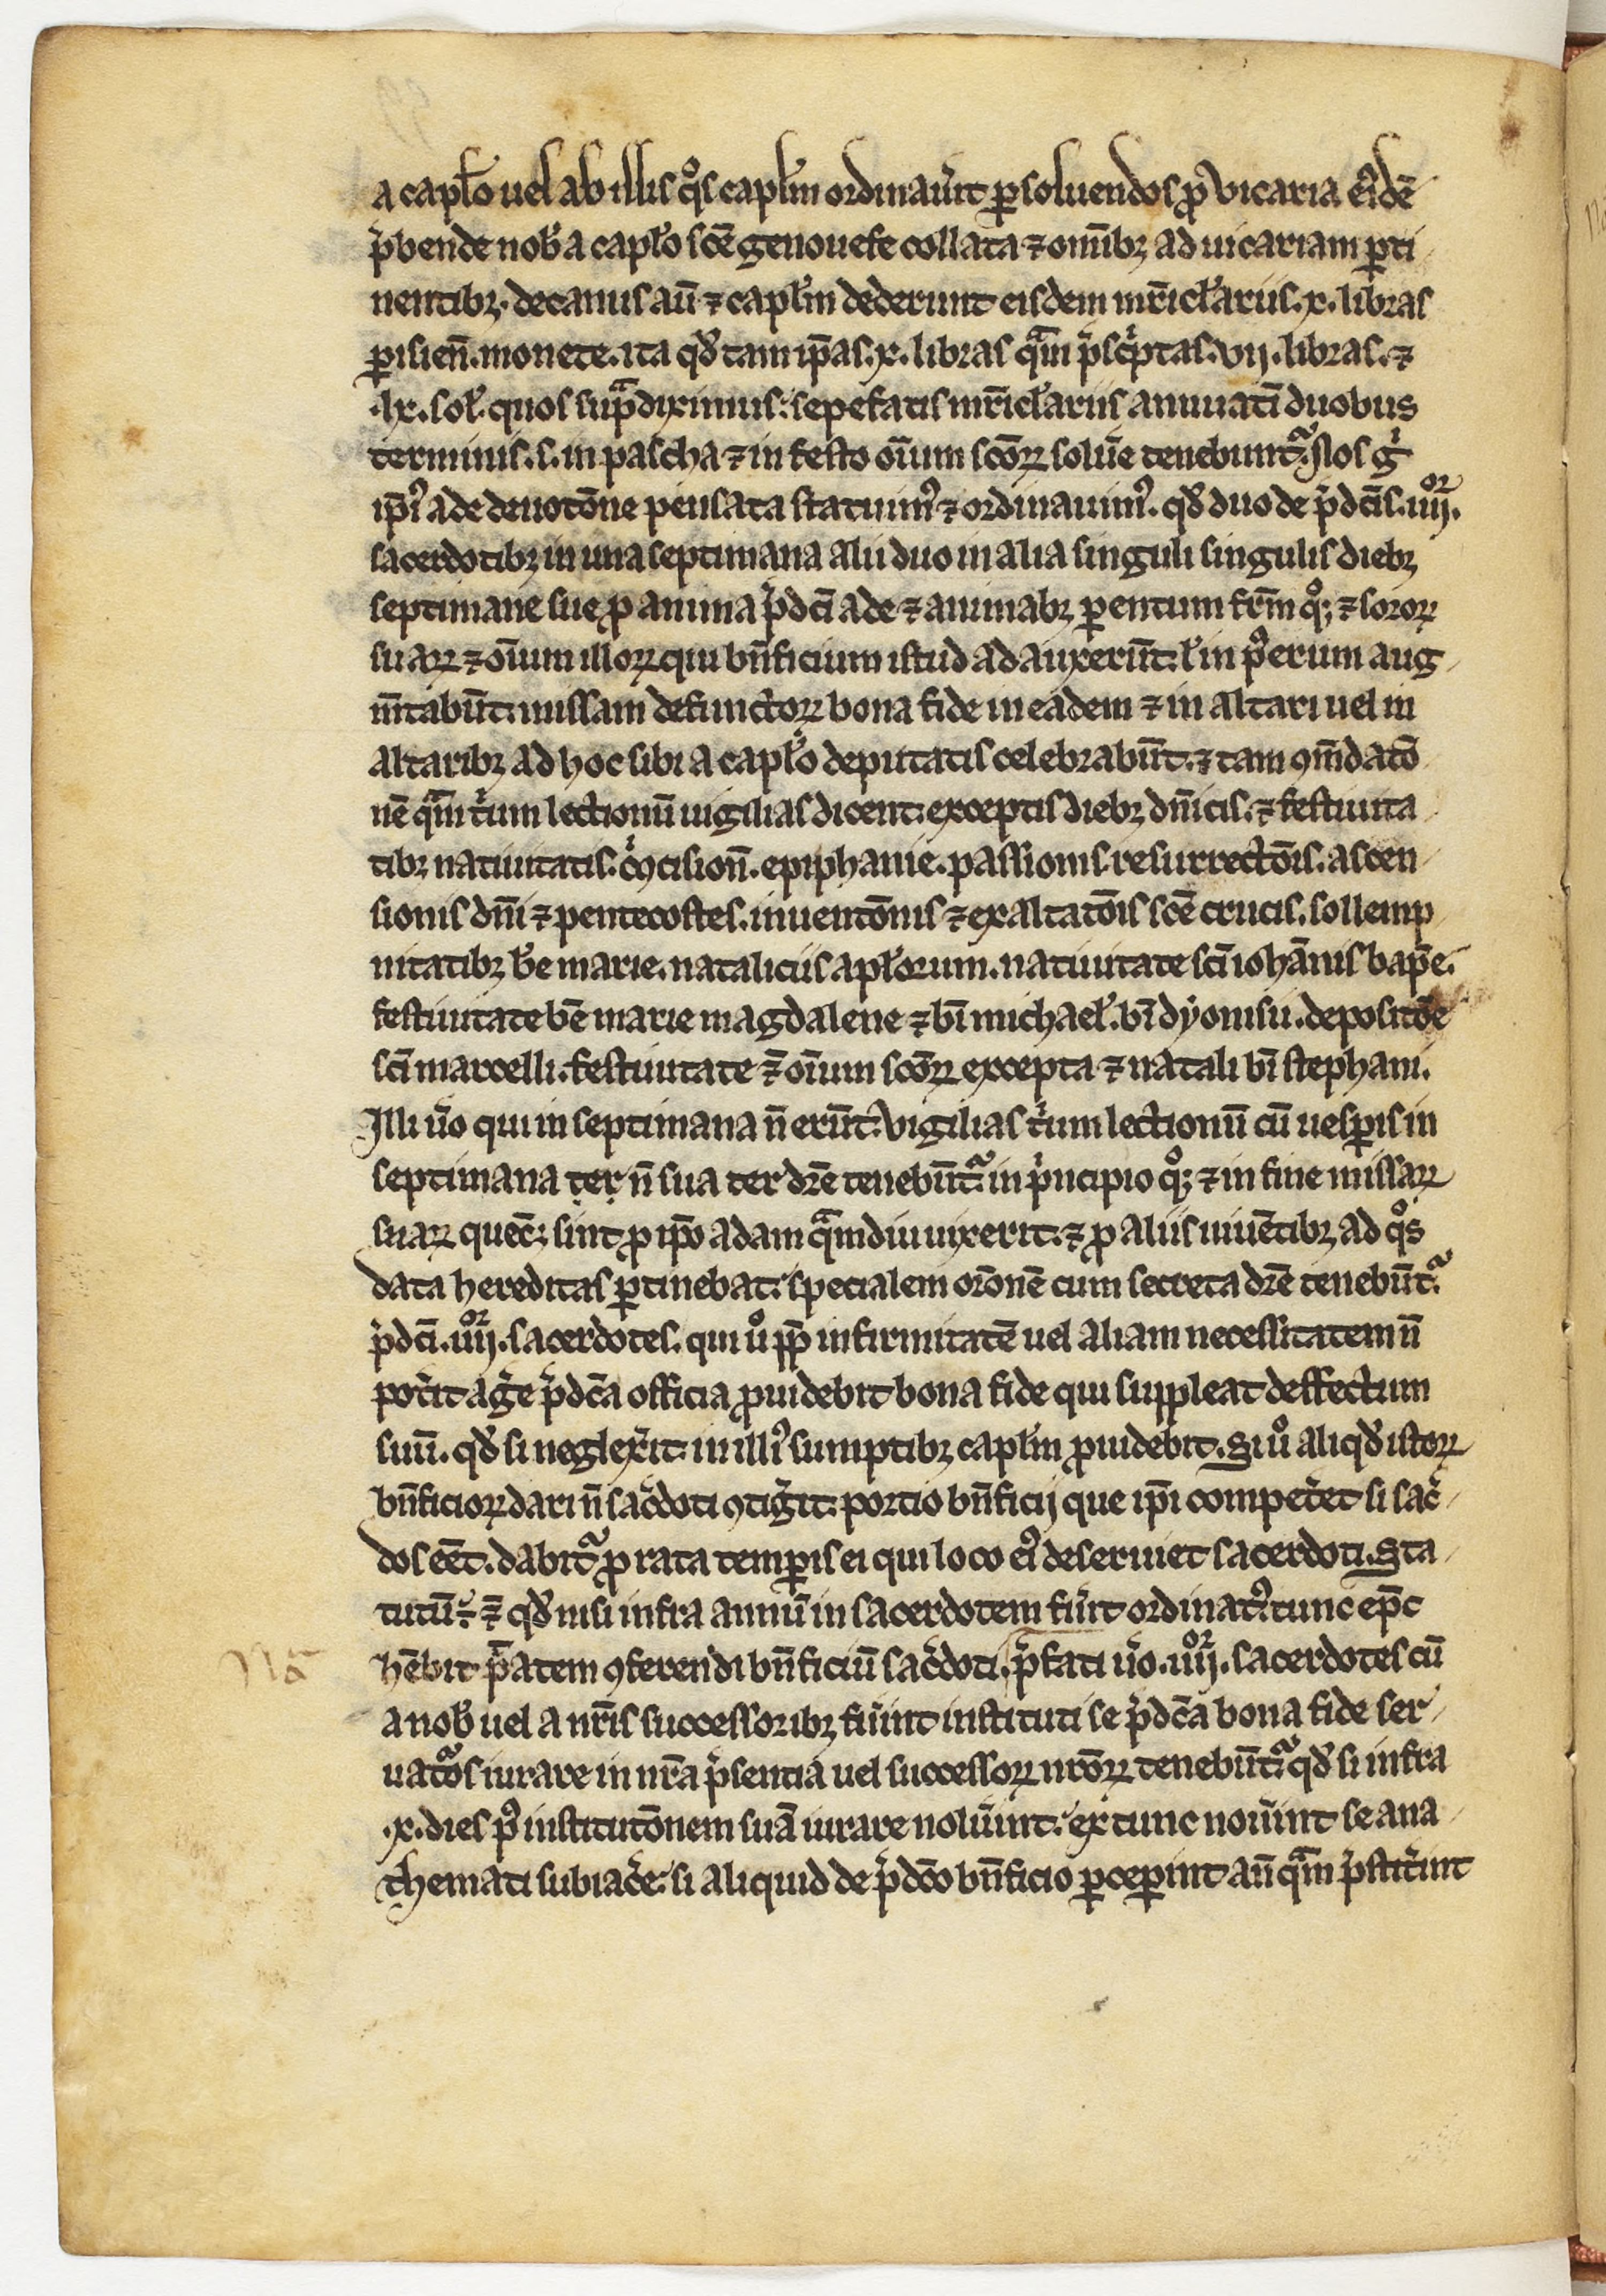 a capl̄o uel ab illis qͦs capl̄m ordinau̾it ꝑsoluendos ꝓ vicaria ei̾dē
p̾bende nob̾ a capl̾o sc̄e genouefe collata ⁊ om̄ibꝫ ad uicariam ꝑti
nentibꝫ. decanus au̅ ⁊ capl̾m dederunt eisdem mr̄icl̾ariis .x. libras
ꝑisien̄. monete. ita qd̾ tam ip̄as .x. libras qᷓm p̾sc͛ptas .vij. libras. ⁊
.lx. sol̾. quos supᷓdiximus. sepefatis mr̄icl̾ariis annuatī duobus
terminis .s. in pascha ⁊ in festo om̄ium sc̄oꝝ solu̾e tenebunt᷑. Nos g̾
ip̄iꝰ ade deuotōne pensata statuimꝰ ⁊ ordinauimꝰ. qd̾ duo de p̾dc̄is .iiij.ᵒʳ
sacerdotibꝫ in una septimana alii duo in alia singuli singulis diebꝫ
septimane sue ꝓ anima p̾dc̄i ade ⁊ animabꝫ ꝑentum fr̄m qͦꝫ ⁊ soroꝝ
suaꝝ ⁊ om̄ium illoꝝ qui bn̄ficium istud adauxerūt. l̾ in pꝰerum aug
m̄tabūt. missam defunctoꝝ bona fide in eadem ⁊ in altari uel in
altaribꝫ ad hoc sibi a capl̾o deputatis celebrabūt. ⁊ tam ꝯm̄datō
nē qᷓm t̾um lectionū uigilias dicent. exceptis diebꝫ dn̄icis. ⁊ festiuita
tibꝫ natiuitatis. c̾ꝯcision̄. epiphanie. passionis. resurrectōis. ascen
sionis dn̄i ⁊ pentecostes. inuentōnis ⁊ exaltatōis sc̄e crucis. sollemp
nitatibꝫ b̾e marie. nataliciis apl̾orum. natiuitate sc̄i ioh̄annis bap̄e.
festiuitate bē marie magdalene ⁊ bī michael̾. bī dyonisii. depositōe
sc̄i marcelli. festiuitate ⁊̄ om̄ium sc̄oꝝ excepta ⁊ natali bī stephani.
Illi u̾o qui in septimana n̄ erūt. vigilias t̾um lectionū cū uesꝑis in
septimana ter n̄ sua ter dr̄e tenebūt᷑. in p̾ncipio qͦꝫ ⁊ in fine missaꝝ
suaꝝ quec̄ꝫ sint ꝓ ip̄o adam qᷓmdiu uixerit. ⁊ ꝓ aliis uiuētibꝫ ad qͦs
data hereditas ꝑtinebat. specialem or̄onē cum secreta dr̄e tenebūt᷑
p̾dc̄i .iiij.ᵒʳ sacerdotes. qui uͦ ꝓp̄ infirmitatē uel aliam necessitatem n̄
pot̾it ag̾e p̾dc̄a officia ꝓuidebit bona fide qui suppleat deffectum
suū. qd̾ si neglex̾it. in illiꝰ sumptibꝫ capl̾m ꝓuidebit. Si uͦ aliqd̾ istoꝝ
bn̄ficioꝝ dari n̄ sac̾doti ꝯtig̾it. portio bn̄ficij que ip̄i compet̾et si sac̾
dos eēt. dabit᷑ ꝓ rata temꝑis ei qui loco eiꝰ deseruiet sacerdoti. Sta
tutū ÷ ⁊̄ qd̾ nisi infra annū in sacerdotem fu̾it ordinatꝰ. tunc ep̄c
hēbit p̄atem ꝯferendi bn̄ficiū sac̾doti. p̾fati u̾o .iiij.ᵒʳ sacerdotes cū
a nob̾ uel a nr̄is successoribꝫ fu̾int instituti se p̾dc̄a bona fide ser
uatᷓos iurare in nr̄a p̾sentia uel successoꝝ nr̄oꝝ tenebūt᷑. qd̾ si infra
.x. dies pꝰ institutōnem suā iurare nolu̾int. ex tunc nou̾int se ana
themati subiac̾e. si aliquid de p̾dc̄o bn̄ficio ꝑceꝑint an̄qᷓm p̾stit̾int
Nᵃ